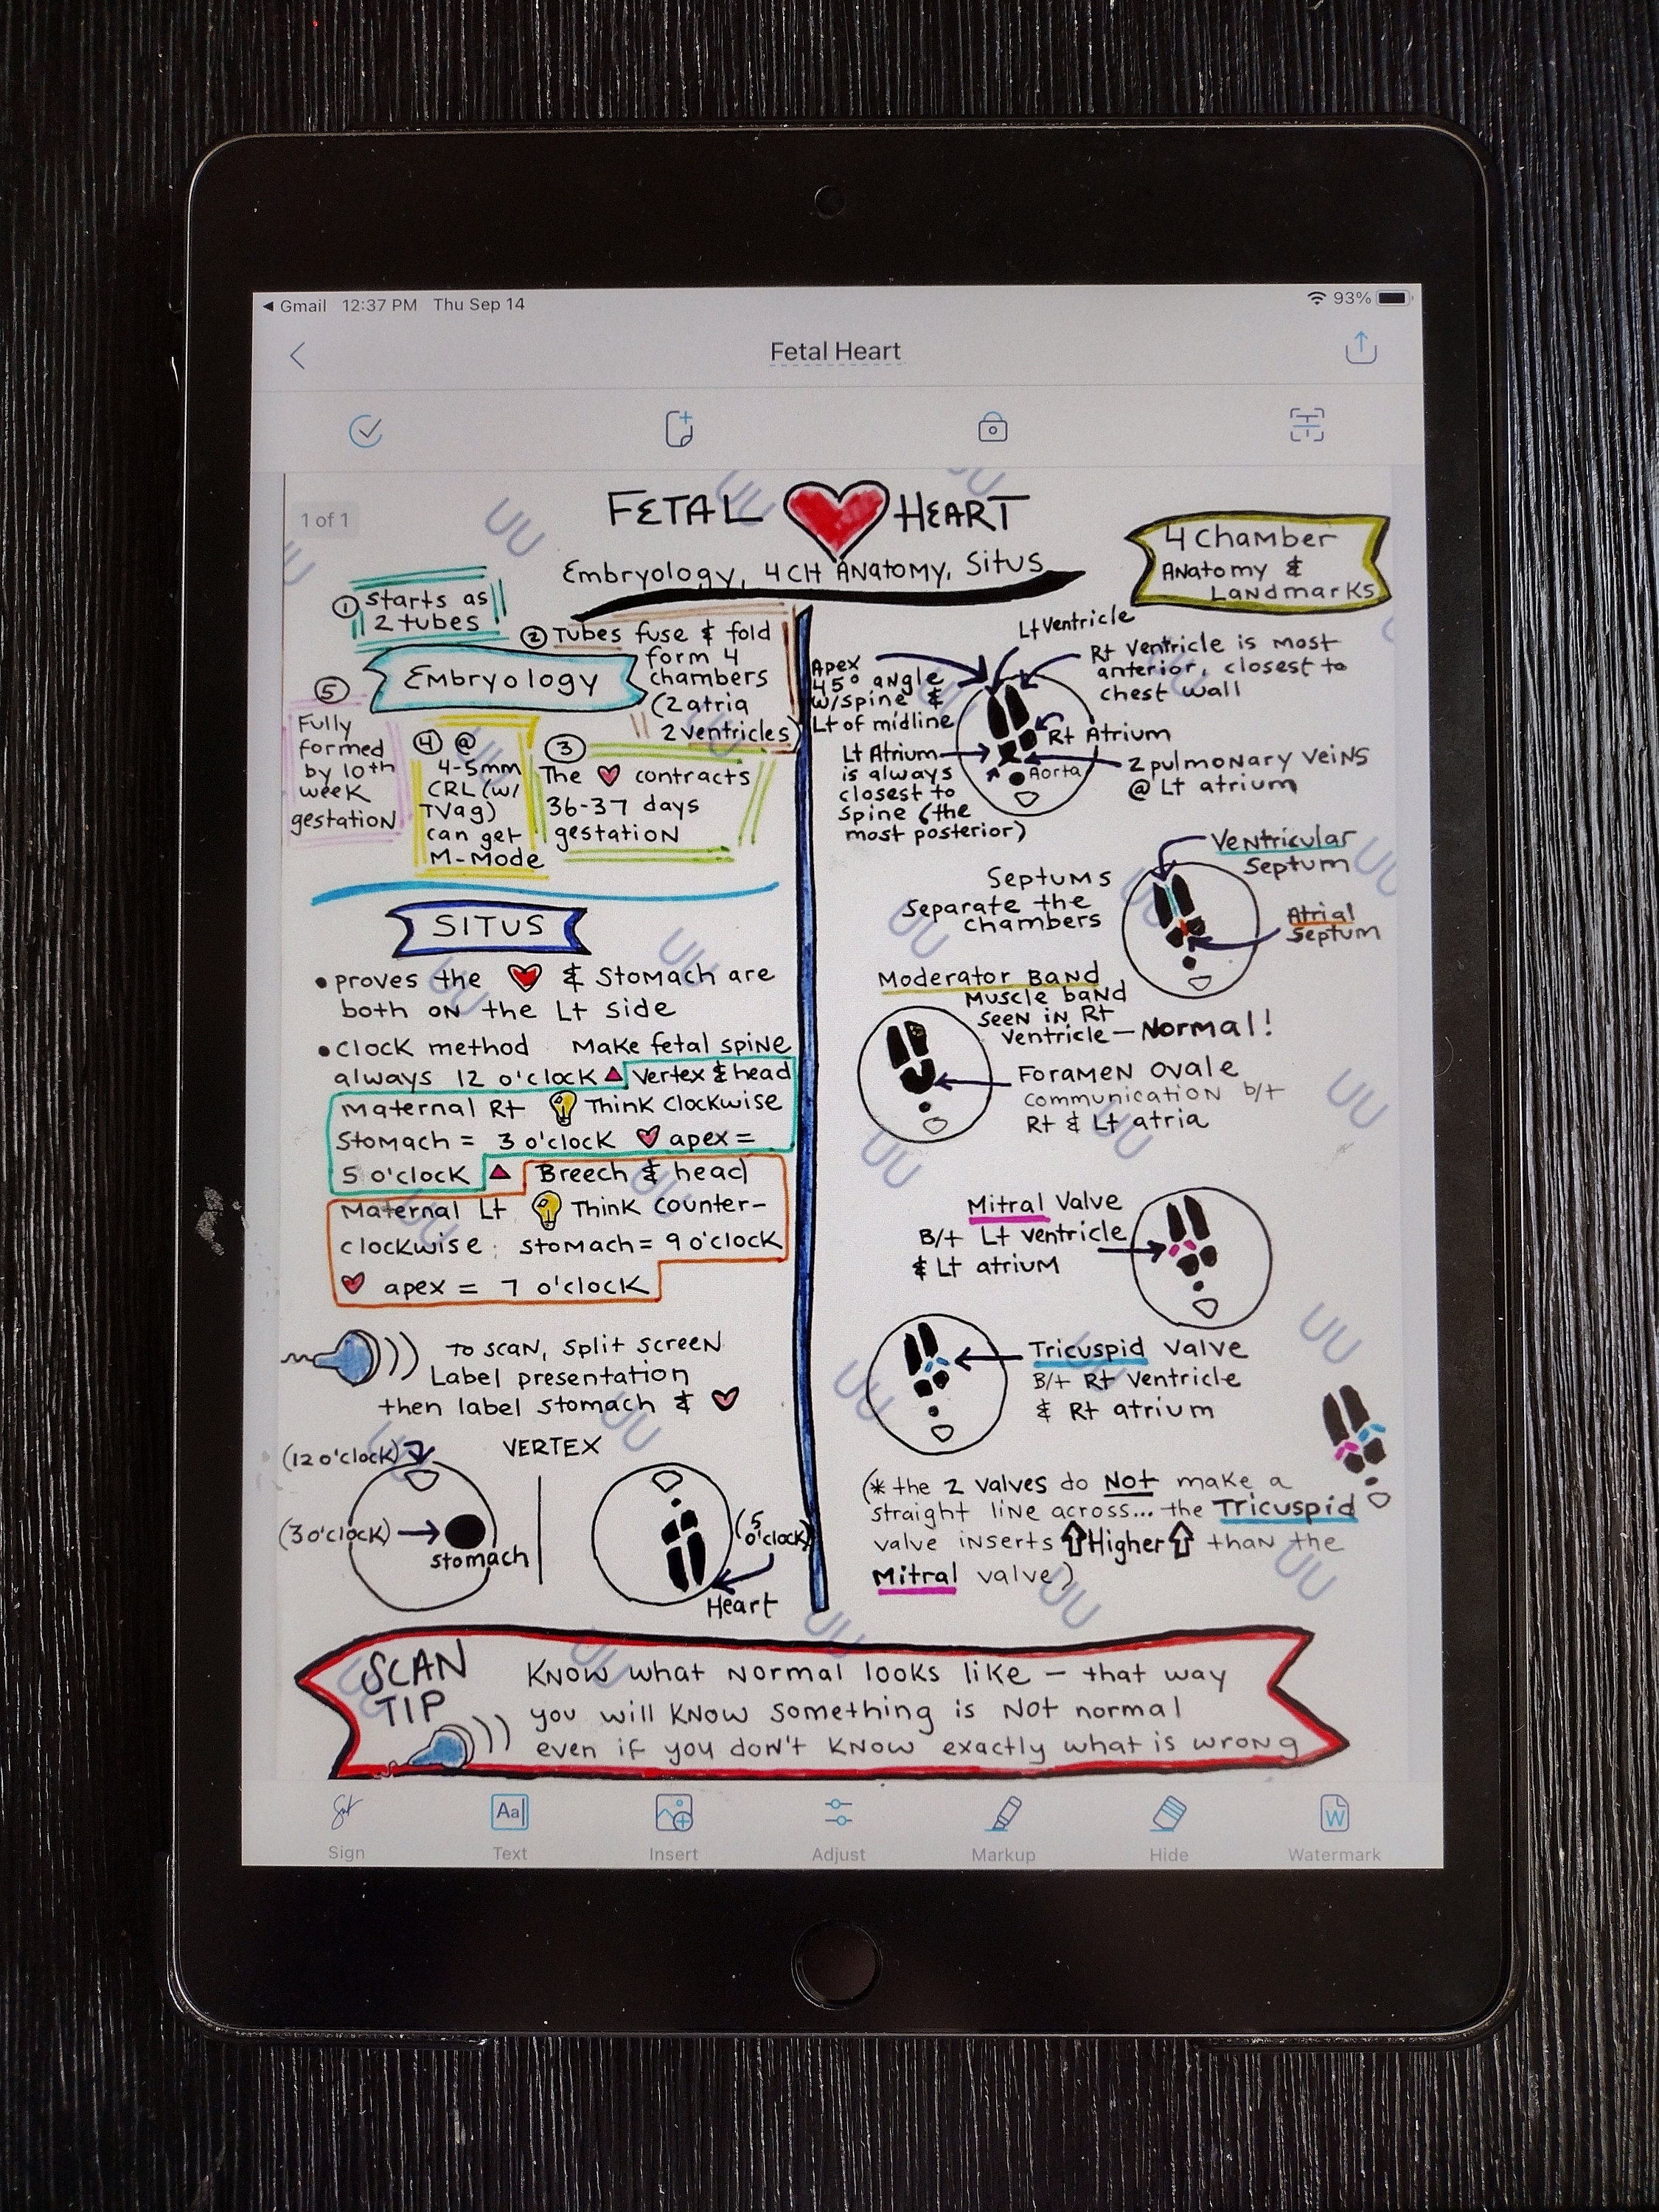 Gmail 12:37 PM Thu Sep 14
93%
Fetal Heart
1 of 1
FETAL HEART
Embryology, 4CH Anatomy, Situs
① starts as
2 tubes
② Tubes fuse & fold
form 4
chambers
(2 atria
2 ventricles)
Embryology
③
The contracts
36-37 days
gestation
④ @
4-5mm
CRL (w/
TVag)
can get
M-Mode
⑤
Fully
formed
by 10th
week
gestation
SITUS
• proves the & stomach are
both on the Lt side
• clock method Make fetal spine
always 12 o'clock Vertex & head
Maternal Rt Think clockwise
Stomach = 3 o'clock apex =
5 o'clock Breech & head
Maternal Lt Think counter-
clockwise: stomach = 9 o'clock
apex = 7 o'clock
To scan, split screen
Label presentation
then label stomach &
VERTEX
(12 o'clock)
(3 o'clock)
stomach
(5
o'clock)
Heart
4 Chamber
Anatomy &
Landmarks
Lt Ventricle
Rt Ventricle is most
anterior, closest to
chest wall
Apex
45° angle
w/spine &
Lt of midline
Rt Atrium
Lt Atrium
is always
closest to
spine (the
most posterior)
Aorta
2 pulmonary veins
@ Lt atrium
Ventricular
Septum
Septums
Separate the
chambers
Atrial
Septum
Moderator Band
Muscle band
seen in Rt
Ventricle — Normal!
Foramen Ovale
communication b/t
Rt & Lt atria
Mitral Valve
B/t Lt ventricle
& Lt atrium
Tricuspid Valve
B/t Rt Ventricle
& Rt atrium
(* the 2 valves do Not make a
straight line across... the Tricuspid
valve inserts Higher than the
Mitral valve)
SCAN
TIP
Know what normal looks like — that way
you will know something is Not normal
even if you don't know exactly what is wrong
Sign
Text
Insert
Adjust
Markup
Hide
Watermark